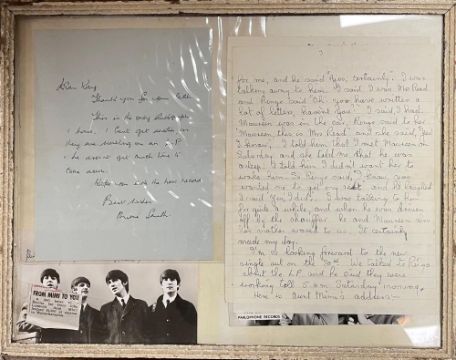 Thank you for your letter
This is the only photograph
I have. I can't get another as
they are working on an L.P.
& he doesn't get much time to
come down.
Hope you like the new record
Best wishes
Smith
FROM MIMI TO YOU
3
for me, and he said "Yes, certainly". I was
talking away to him. I said I was Ms Read
and Ringo said "Oh you have written a
lot of letters, haven't you". I said I had.
Maureen was in the car. Ringo said to her
"Maureen, this is Ms Read" and she said, "Yes
I know". I told him that I met Maureen on
Saturday and she told me that he was
asleep. I told him I didn't want her to
wake him. So Ringo said, "I know, you
wanted me to get my rest" and he laughed
I said Yes, I did. I was talking to him
for quite a while, and when he was driven
off by the chauffeur he and Maureen
another wave to us. It certainly
made my day.
I'm so looking forward to the new
single out on the We talked to Ringo
about the L.P. and he said they were
working till 5 am Saturday morning.
Here is Aunt Mimi's address:-
PARLOPHONE RECORDS